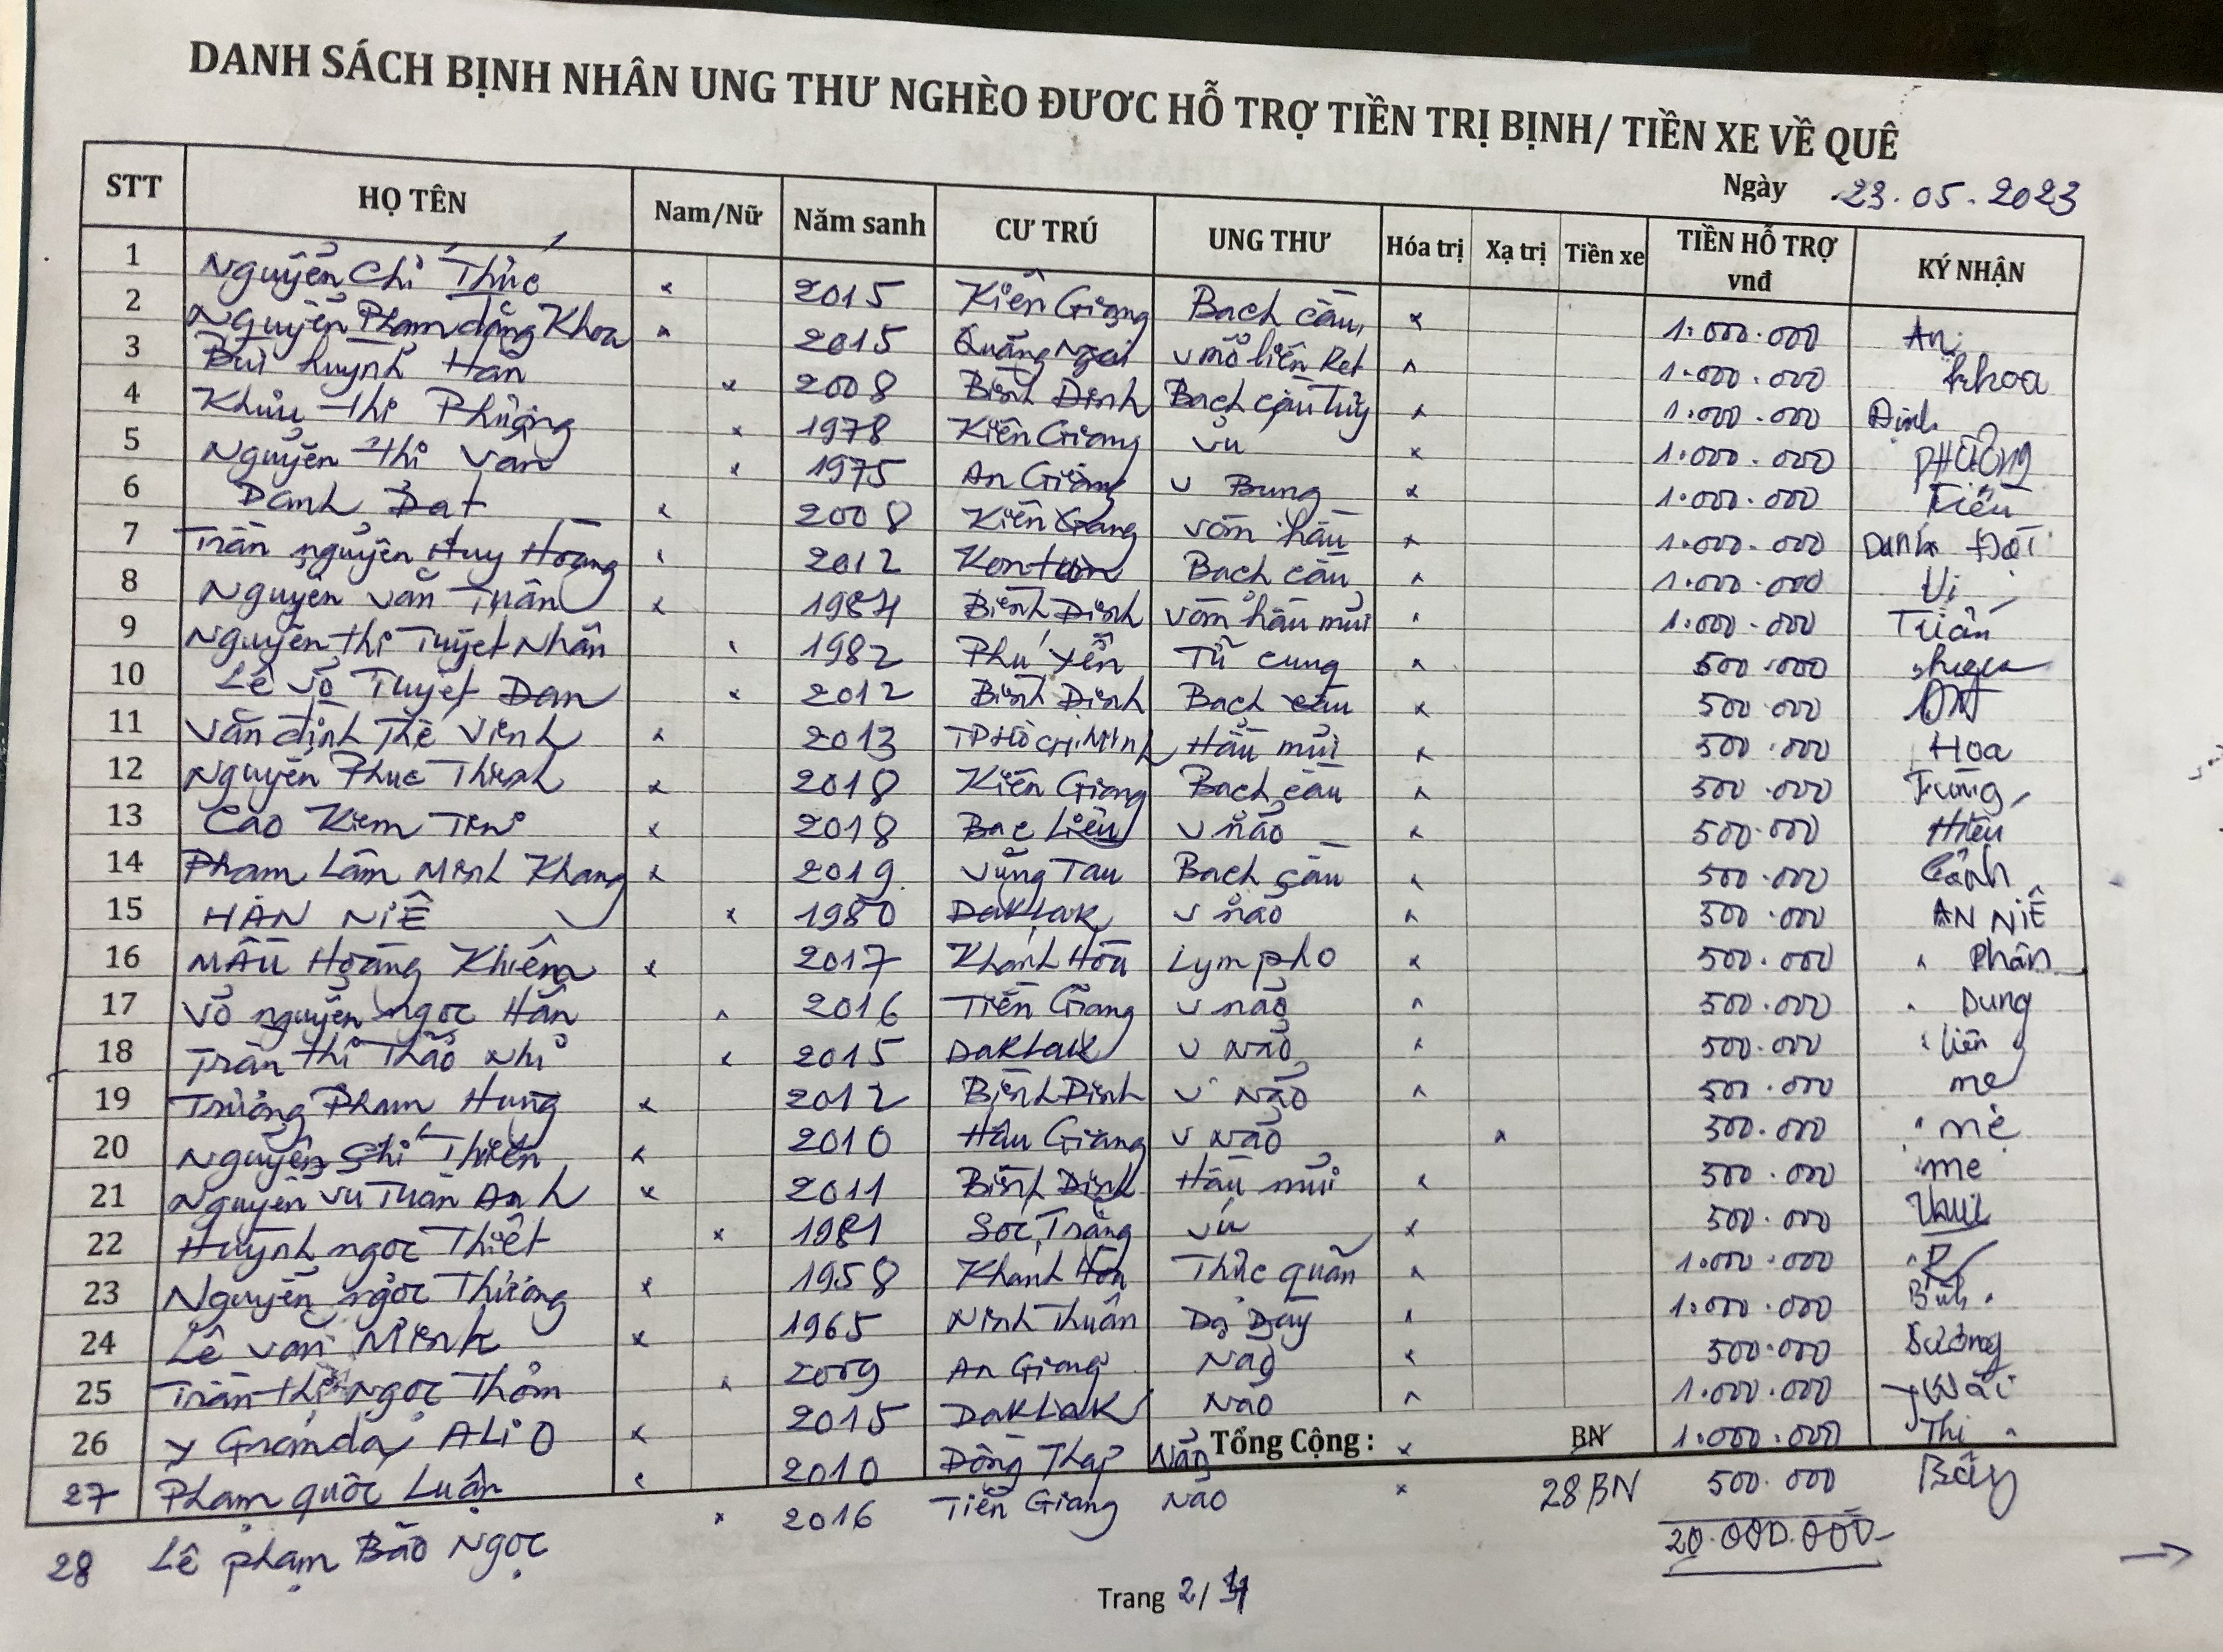 DANH SÁCH BỊNH NHÂN UNG THƯ NGHÈO ĐƯƠC HỖ TRỢ TIỀN TRỊ BỊNH/ TIỀN XE VỀ QUÊ
Ngày 23.05.2023
STT HỌ TÊN Nam/Nữ Năm sanh CƯ TRÚ UNG THƯ Hóa trị Xạ trị Tiền xe TIỀN HỖ TRỢ vnđ KÝ NHẬN
1 Nguyễn Chí Thức x 2015 Kiên Giang Bạch cầu x 1.000.000 An
2 Nguyễn Phạm đăng Khoa x 2015 Quảng Ngãi U mô liên Ket x 1.000.000 khoa
3 Bùi huỳnh Hân x 2008 Bình Định Bạch cầu Tủy x 1.000.000 Định
4 Khưu thị Phượng x 1978 Kiên Giang Vú x 1.000.000 PHƯỢNG
5 Nguyễn thị Vân x 1975 An Giang U Bụng x 1.000.000 Kiều
6 Danh Đạt x 2008 Kiên Giang Vòm hầu x 1.000.000 Danh Đạt
7 Trần nguyên Huy Hoàng x 2012 Kontum Bạch cầu x 1.000.000 Vi
8 Nguyễn văn Tuấn x 1984 Bình Định Vòm hầu mũi x 1.000.000
9 Nguyễn thị Tuyết Nhân x 1982 Phú Yên Tử cung x 500.000
10 Lê Võ Tuyết Dan x 2012 Bình Định Bạch cầu x 500.000
11 Văn đình Thế Vinh x 2013 TP Hồ CHí MINH Hầu mũi x 500.000 Hoa
12 Nguyễn Phuc Thịnh x 2018 Kiên Giang Bạch cầu x 500.000
13 Cao Kiem x 2018 Bạc Liêu U não x 500.000 Hiếu
14 Phạm Lâm Minh Khang x 2019 Vũng Tàu Bạch cầu x 500.000 Cảnh
15 HÀN NIÊ x 1980 DAKLAK U não x 500.000 AN NIÊ
16 MẤU Hoàng Khiêm x 2017 Khánh Hòa Lympho x 500.000 Phấn
17 Võ nguyễn ngọc Hân x 2016 Tiền Giang U não x 500.000 Dung
18 Trần thị Thảo Như x 2015 DAKLAK U Não x 500.000 liên
19 Trương Phạm Hưng x 2012 Bình Định U Não x 500.000 mẹ
20 Nguyễn Chí Thiên x 2010 Hậu Giang U Não x 500.000 mẹ
21 Nguyễn Vũ Tuấn Anh x 2011 Bình Định Hầu mũi x 500.000 mẹ
22 Huỳnh ngọc Thiết x 1981 Sóc Trăng Vú x 500.000
23 Nguyễn ngọc Thương x 1958 Khánh Hòa Thực quản x 1.000.000
24 Lê văn Minh x 1965 Ninh Thuận Dạ Dày x 1.000.000
25 Trần thị Ngọc Thơm x 2009 An Giang Não x 500.000 Sương
26 Y Grandaj ALiO x 2015 DAKLAK Não x 1.000.000
27 Phạm quốc Luận x 2010 Đồng Tháp Não x 1.000.000 Thi
Tổng Cộng : BN
28 Lê phạm Bảo Ngọc x 2016 Tiền Giang Não x 28 BN 500.000 Bảy
20.000.000
Trang 2/